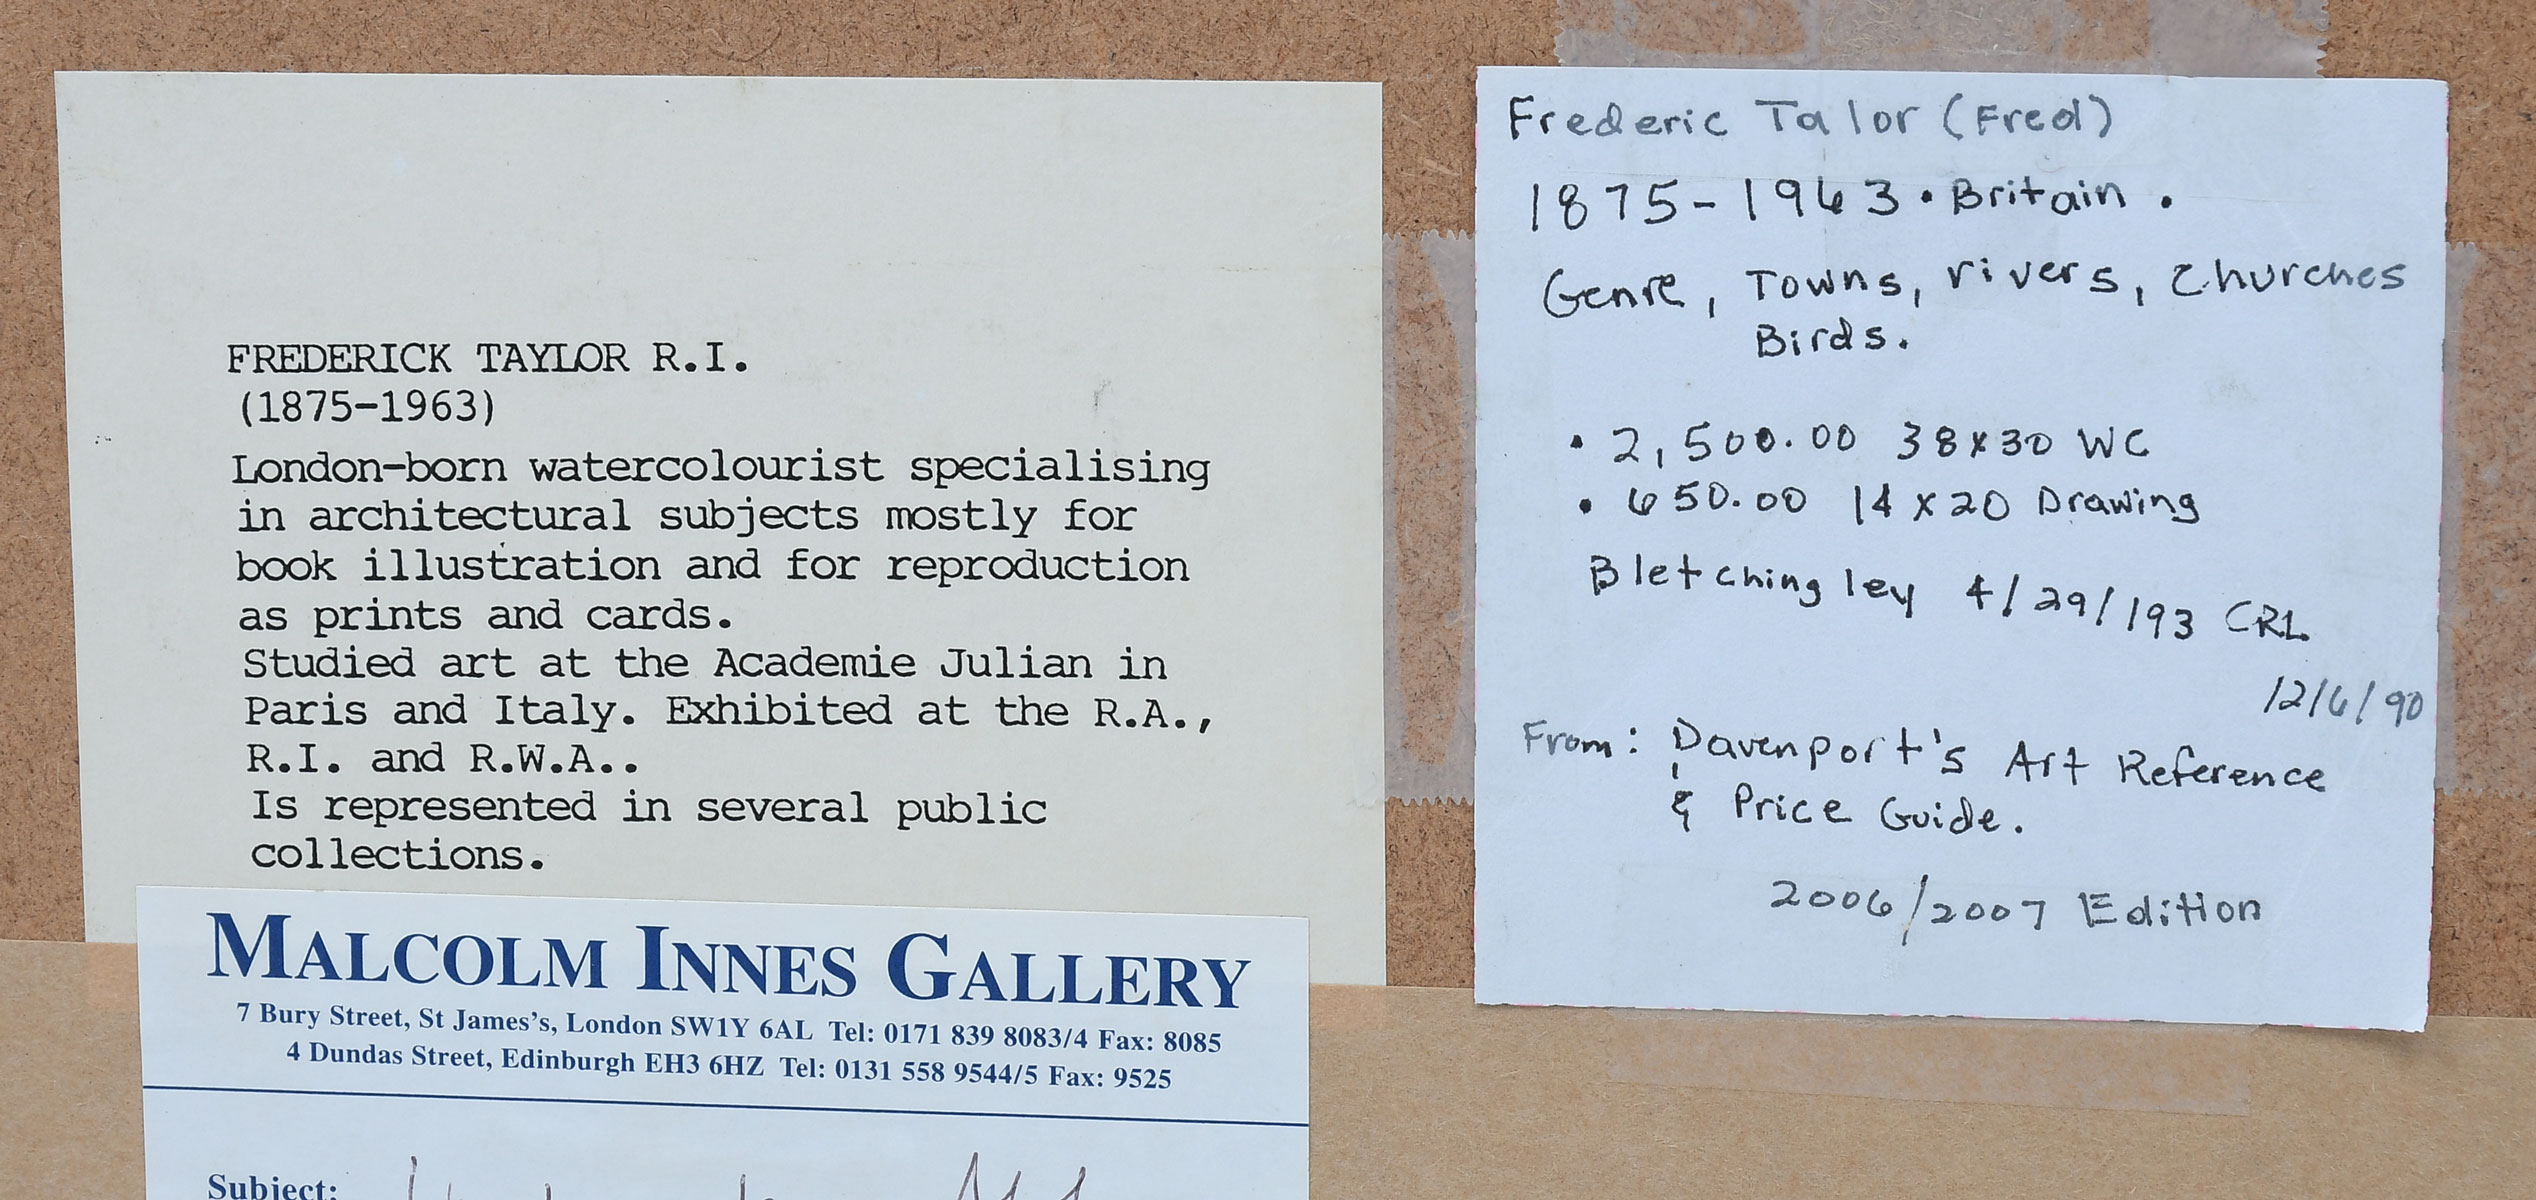 FREDERICK TAYLOR R.I.
(1875-1963)
London-born watercolourist specialising
in architectural subjects mostly for
book illustration and for reproduction
as prints and cards.
Studied art at the Academie Julian in
Paris and Italy. Exhibited at the R.A.,
R.I. and R.W.A..
Is represented in several public
collections.
MALCOLM INNES GALLERY
7 Bury Street, St James's, London SW1Y 6AL Tel: 0171 839 8083/4 Fax: 8085
4 Dundas Street, Edinburgh EH3 6HZ Tel: 0131 558 9544/5 Fax: 9525
Subject:
Frederic Talor (Fred)
1875-1963 • Britain .
Genre, Towns, rivers, Churches
Birds.
• 2,500.00 38x30 WC
• 650.00 14x20 Drawing
Bletchingley 4/29/193 CRL
12/6/90
From: Davenport's Art Reference
& Price Guide.
2006/2007 Edition